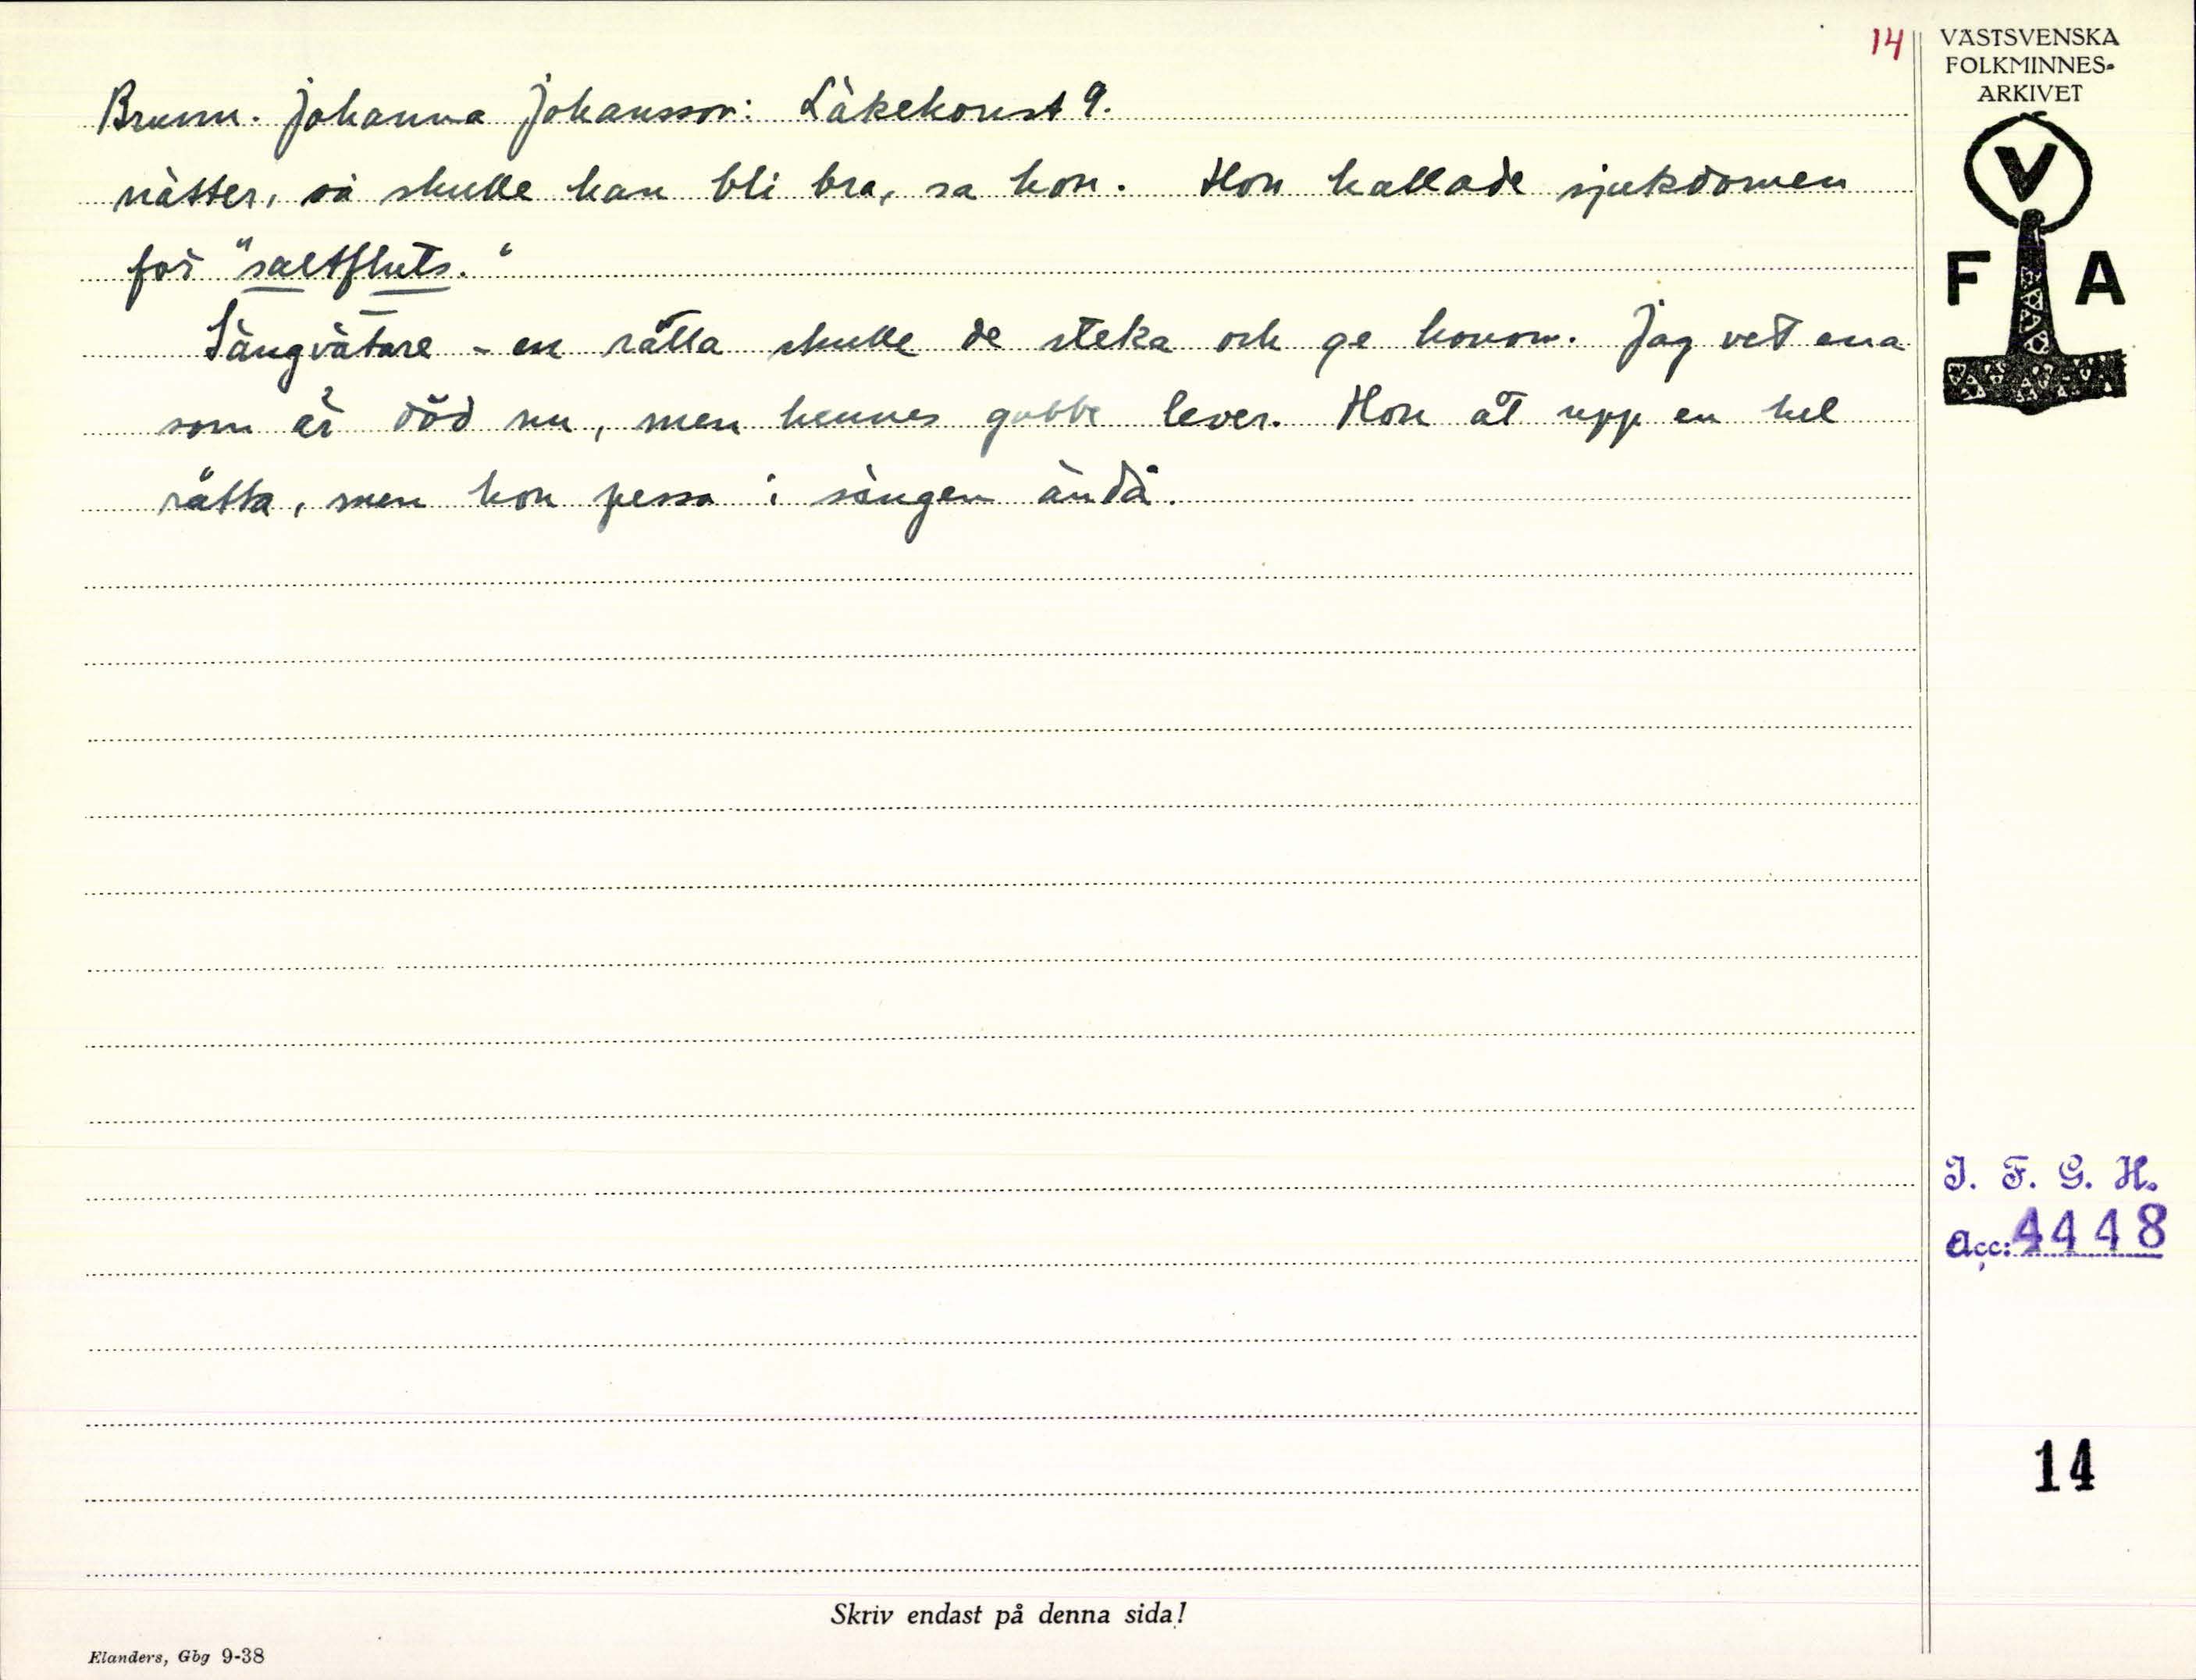 14
VÄSTSVENSKA
FOLKMINNES-
ARKIVET
Brunn. Johanna Johansson: Läkekonst 9.
nätter, så skulle han bli bra, sa hon. Hon kallade sjukdomen
för "saltfluts."
Sängvätare - en råtta skulle de steka och ge honom. Jag vet ena
som är död nu, men hennes gubbe lever. Hon åt upp en hel
råtta, men hon pessa i sängen ändå.
V
F A
I. F. G. H.
Acc: 4448
14
Skriv endast på denna sida!
Elanders, Gbg 9-38